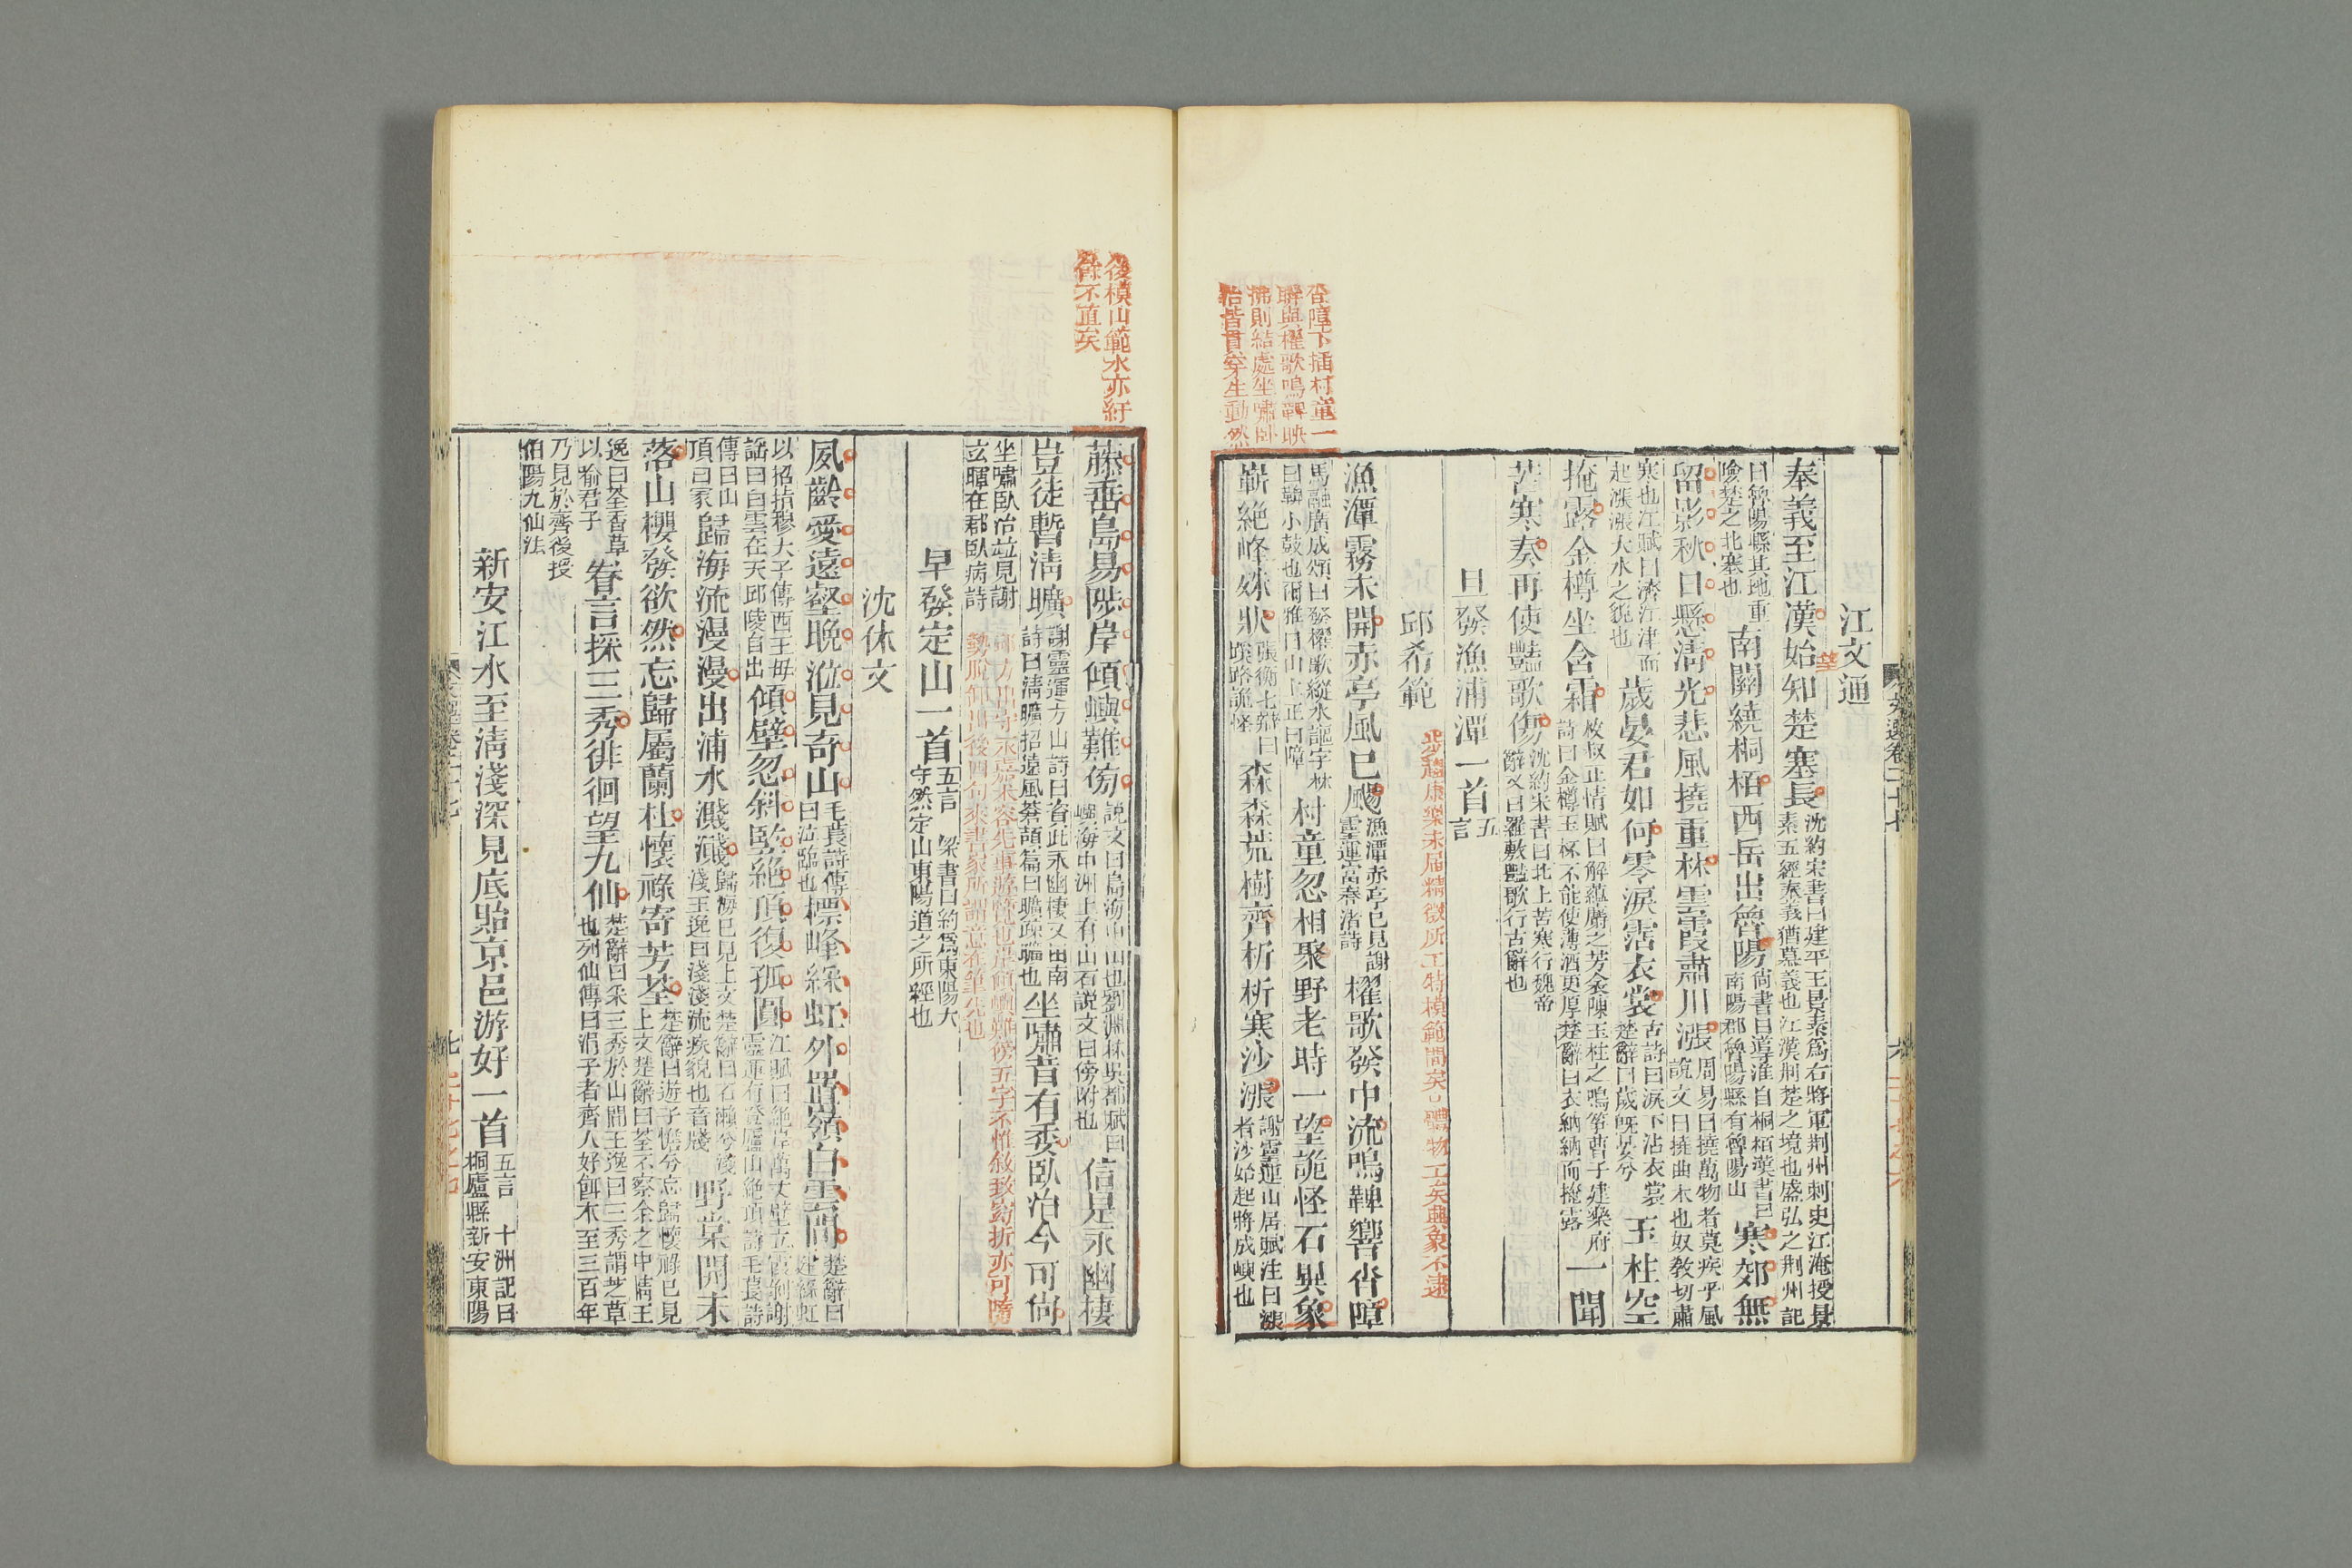 江文通
奉義至江漢始知楚塞長沈約宋書曰建平王景素爲右將軍荆州刺史江淹授景
素五經奉義猶慕義也江漢荆楚之境也盛弘之荆州記
曰魯陽縣其地重
險楚之北塞也南關繞桐栢西岳出魯陽尚書曰導淮自桐栢漢書曰
南陽郡魯陽縣有魯陽山寒郊無
留影秋日懸清光悲風撓重林雲霞肅川漲周易曰撓萬物者莫疾乎風
說文曰撓曲木也奴教切肅
寒也江賦曰濟江津而
起漲漲大水之貌也歲晏君如何零淚霑衣裳古詩曰淚下沾衣裳
楚辭曰歲既晏兮玉柱空
掩露金樽坐含霜枚叔正情賦曰解蘊麝之芳衾陳玉柱之鳴箏曹子建樂府
詩曰金樽玉杯不能使薄酒更厚楚辭曰衣納納而掩露一聞
苦寒奏再使豔歌傷沈約宋書曰北上苦寒行魏帝
辭又曰羅敷豔歌行古辭也
旦發漁浦潭一首五
言
邱希範步趨康樂未屆精微所工特模範間矣○體物工矣興象不逮
漁潭霧未開赤亭風已颺漁潭赤亭已見謝
靈運富春渚詩櫂歌發中流鳴鞞響沓障
馬融廣成頌曰發櫂歌縱水謳字林
曰鞞小鼓也爾雅曰山上正曰障村童忽相聚野老時一望詭怪石異象
嶄絶峰殊狀張衡七辯曰
蹊路詭怪森森荒樹齊析析寒沙漲謝靈運山居賦注曰漲
者沙始起將成嶼也
沓障下插村童一
聯與櫂歌鳴鞞映
拂則結處坐嘯卧
治皆貫穿生動然
後模山範水亦紆
餘不直矣
藤垂島易陟岸傾嶼難傍說文曰島海中山也劉淵林吳都賦曰
嶼海中洲上有山石說文曰傍附也信是永幽棲
豈徒暫清曠謝靈運方山詩曰資此永幽棲又田南
詩曰清曠招遠風蒼頡篇曰曠疎曠也坐嘯昔有委臥治今可尚
坐嘯臥治竝見謝
玄暉在郡臥病詩
早發定山一首五言　梁書曰約爲東陽大
守然定山東陽道之所經也
沈休文
夙齡愛遠壑晚涖見奇山毛萇詩傳
曰涖臨也標峰綵虹外置嶺白雲間楚辭曰
建綵虹
以招指穆天子傳西王母
謡曰白雲在天邱陵自出傾壁忽斜豎絶頂復孤圓江賦曰絶岸萬丈壁立霞剥謝
靈運有登廬山絶頂詩毛萇詩
傳曰山
頂曰冢歸海流漫漫出浦水濺濺歸海已見上文楚辭曰石瀨兮淺
淺王逸曰淺淺流疾貌也音牋野棠開未
落山櫻發欲然忘歸屬蘭杜懷祿寄芳荃楚辭曰遊子憺兮忘歸懷祿已見
上文楚辭曰荃不察余之中情王
逸曰荃香草
以喻君子眷言採三秀徘徊望九仙楚辭曰采三秀於山間王逸曰三秀謂芝草
也列仙傳曰涓子者齊人好餌木至三百年
乃見於齊後授
伯陽九仙法
新安江水至清淺深見底貽京邑游好一首五言　十洲記曰
桐廬縣新安東陽